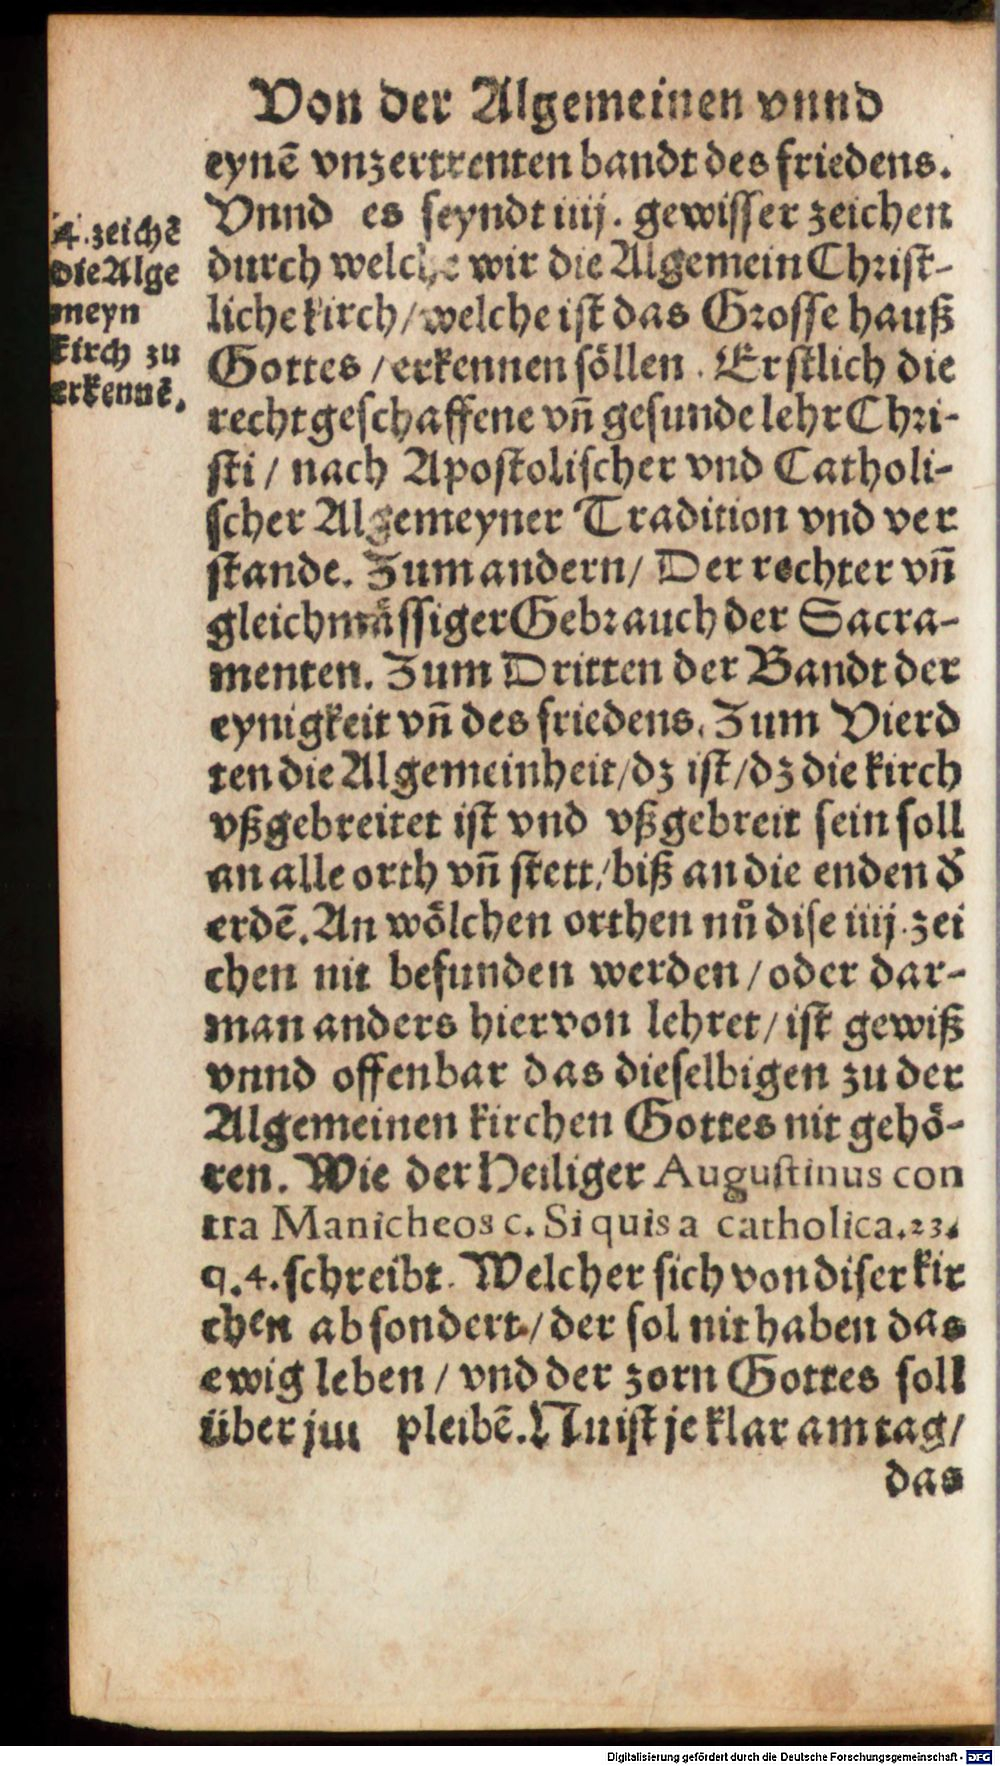 Von der Algemeinen vnnd
eynē vnzertrenten bandt des friedens.
Vnnd es seyndt iiij. gewisser zeichen
durch welche wir die Algemein Christ-
liche kirch/welche ist das Grosse hauß
Gottes/erkennen söllen. Erstlich die
rechtgeschaffene vn̄ gesunde lehr Chri-
sti/ nach Apostolischer vnd Catholi-
scher Algemeyner Tradition vnd ver
stande. Zum andern/ Der rechter vn̄
gleichmässiger Gebrauch der Sacra-
menten. Zum Dritten der Bandt der
eynigkeit vn̄ des friedens. Zum Vierd
ten die Algemeinheit/dz ist/dz die kirch
vßgebreitet ist vnd vßgebreit sein soll
an alle orth vn̄ stett/biß an die enden d̓
erdē. An wölchen orthen nů dise iiij. zei
chen nit befunden werden/oder dar-
man anders hiervon lehret/ist gewiß
vnnd offenbar das dieselbigen zu der
Algemeinen kirchen Gottes nit gehö-
ren. Wie der Heiliger Augustinus con
tra Manicheos c. Si quis a catholica.23.
q.4. schreibt. Welcher sich von diser kir
chen absondert/der sol nit haben das
ewig leben/vnd der zorn Gottes soll
über jm pleibē. Nu ist je klar am tag/
das
4. zeichē
die Alge
meyn
kirch zu
erkennē.
Digitalisierung gefördert durch die Deutsche Forschungsgemeinschaft - DFG